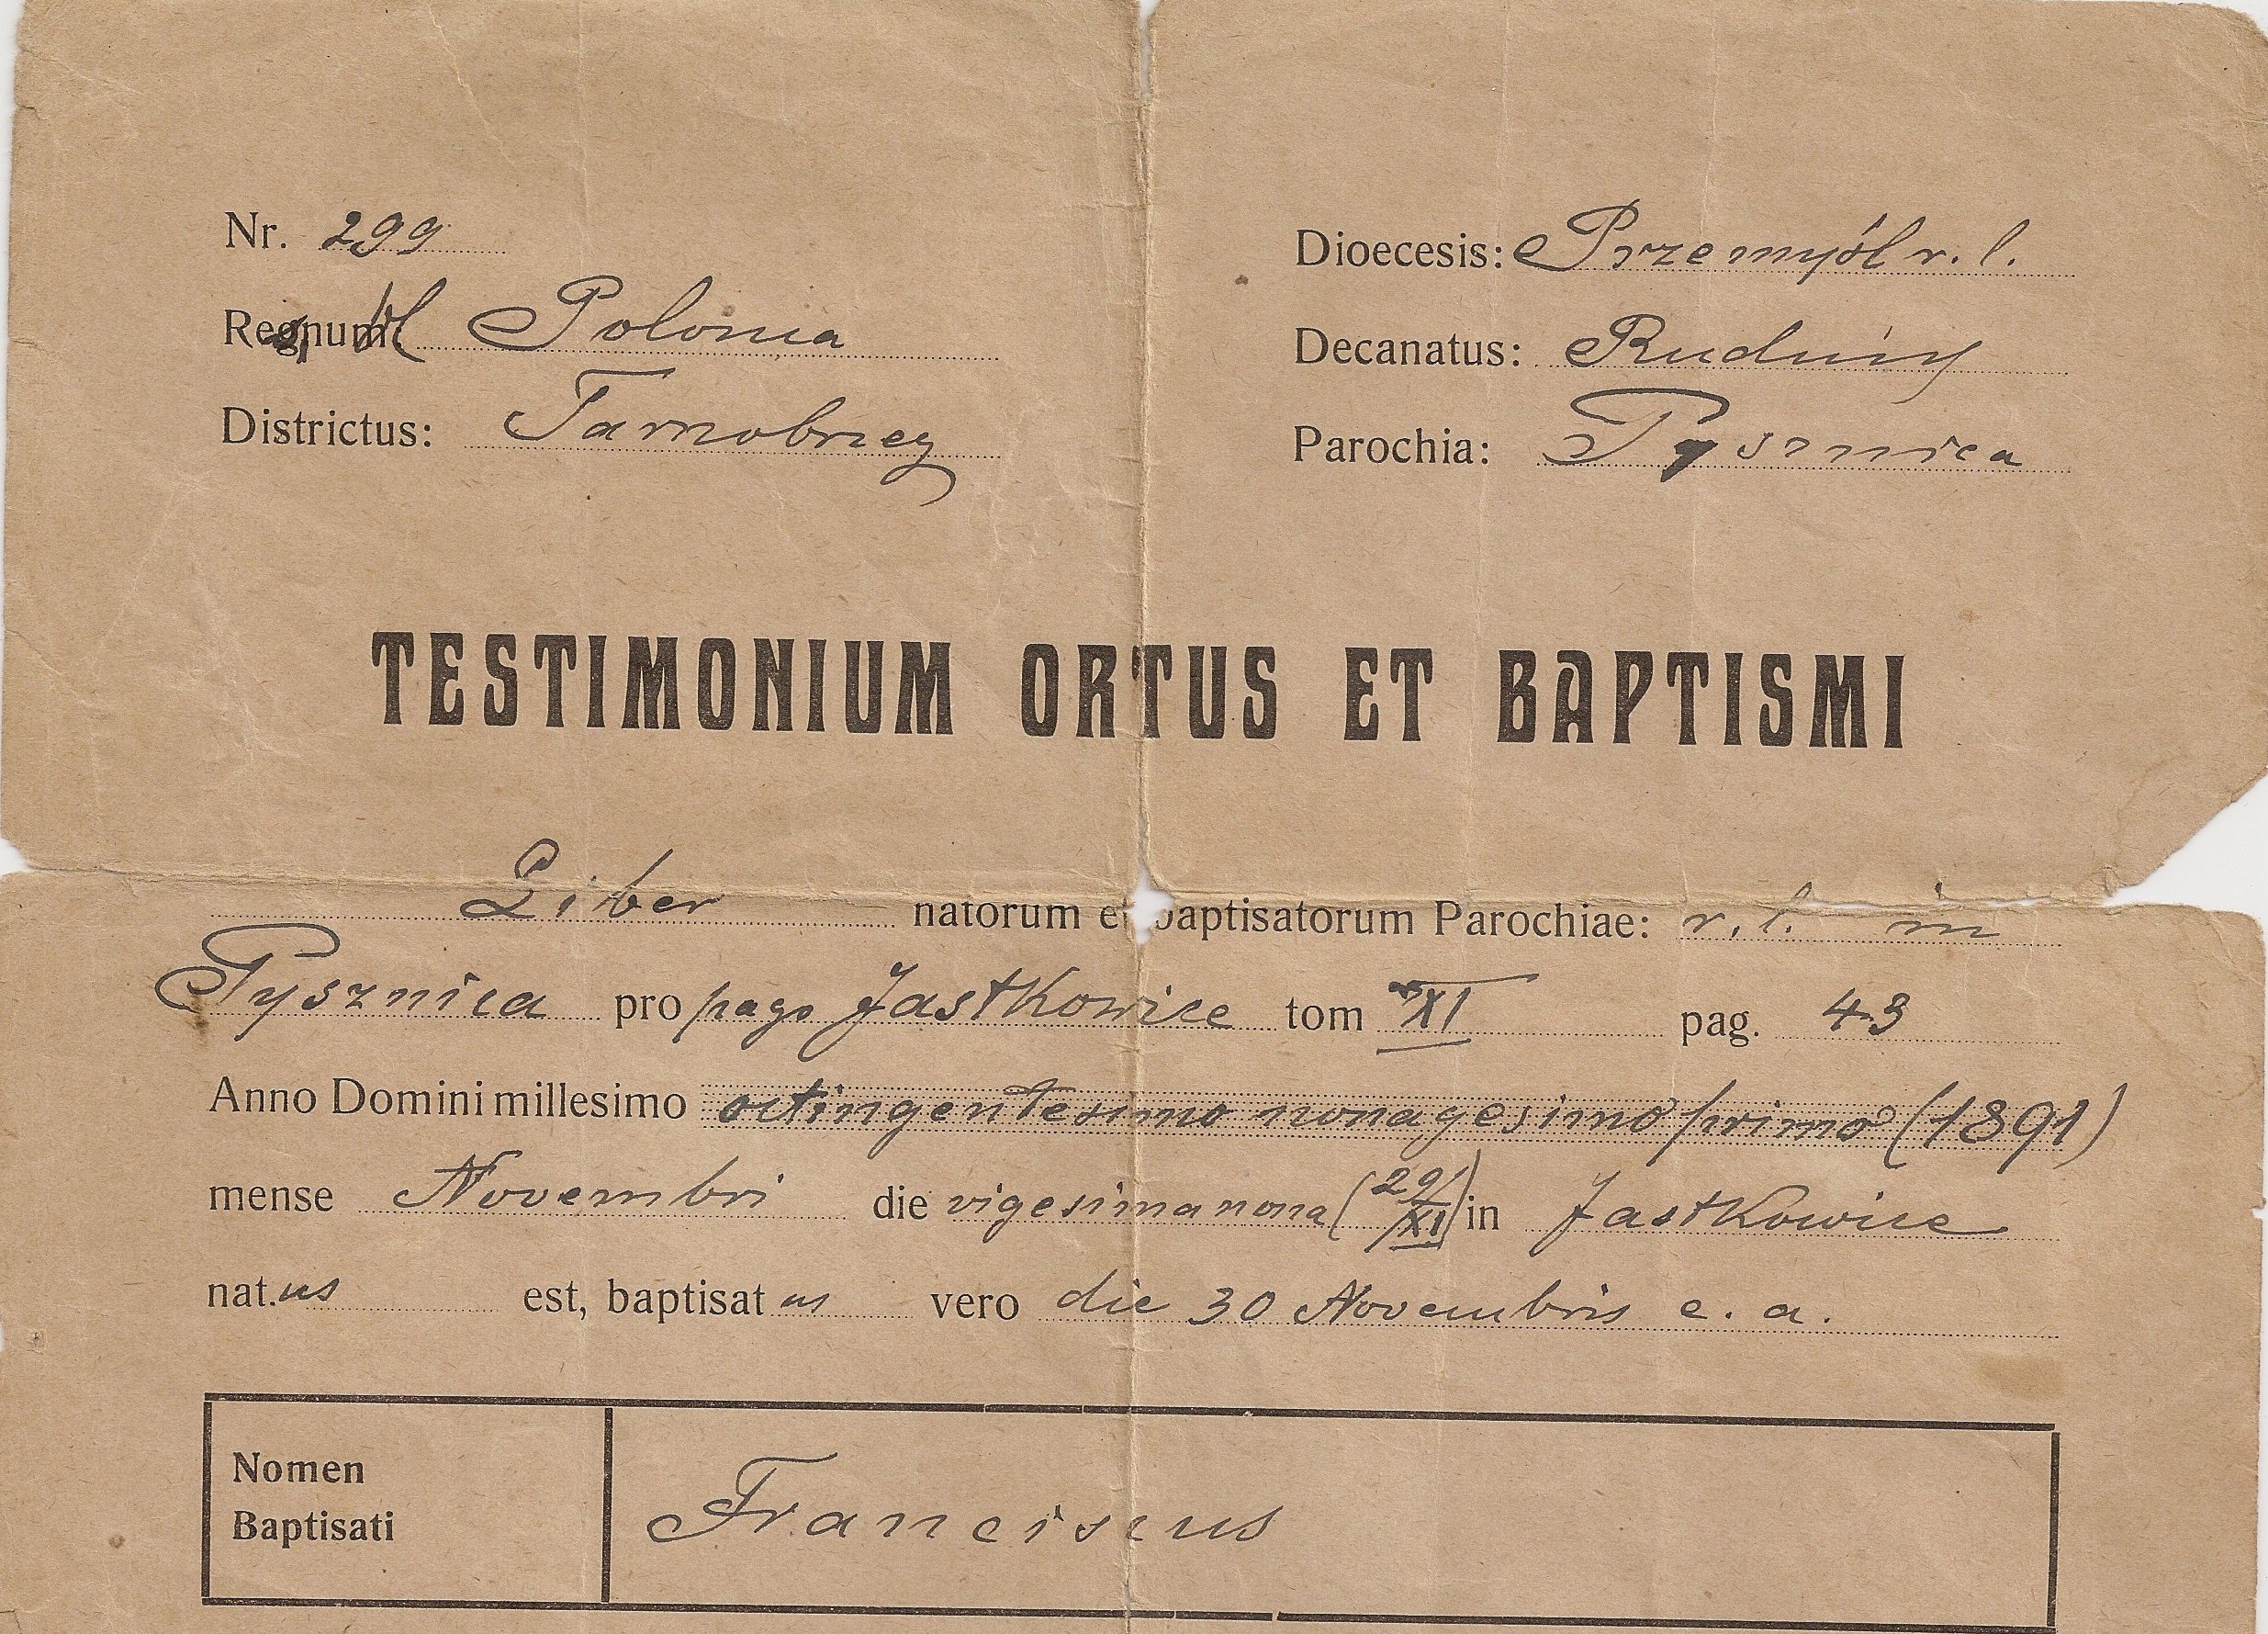 Nr. 299
Dioecesis: Przemyśl r. l.
Polonia
Decanatus: Rudnik
Districtus: Tarnobrzeg
Parochia: Pysznica
TESTIMONIUM ORTUS ET BAPTISMI
Liber natorum et baptisatorum Parochiae: r. l. in
Pysznica pro pago Jastkowice tom XI pag. 43
Anno Domini millesimo octingentesimo nonagesimo primo (1891)
mense Novembri die vigesima nona (29/XI) in Jastkowice
nat. us est, baptisat us vero die 30 Novembris e. a.
Nomen
Baptisati
Franciscus